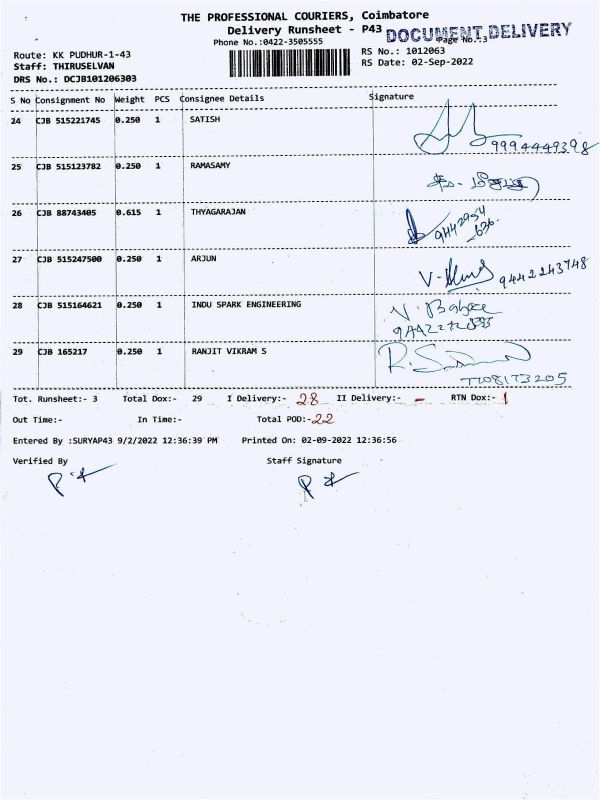 THE PROFESSIONAL COURIERS, Coimbatore
Delivery Runsheet - P43
DOCUMENT DELIVERY
Page No.:3
Phone No.:0422-3505555
Route: KK PUDHUR-1-43
RS No.: 1012063
Staff: THIRUSELVAN
RS Date: 02-Sep-2022
DRS No.: DCJB101206303
S No Consignment No Weight PCS Consignee Details Signature
24 CJB 515221745 0.250 1 SATISH
9994449398
25 CJB 515123782 0.250 1 RAMASAMY
26 CJB 88743405 0.615 1 THYAGARAJAN
9442954
636
27 CJB 515247500 0.250 1 ARJUN
9442243748
28 CJB 515164621 0.250 1 INDU SPARK ENGINEERING
29 CJB 165217 0.250 1 RANJIT VIKRAM S
7708173205
Tot. Runsheet:- 3 Total Dox:- 29 I Delivery:- 28 II Delivery:- - RTN Dox:- 1
Out Time:- In Time:- Total POD:- 22
Entered By :SURYAP43 9/2/2022 12:36:39 PM Printed On: 02-09-2022 12:36:56
Verified By Staff Signature